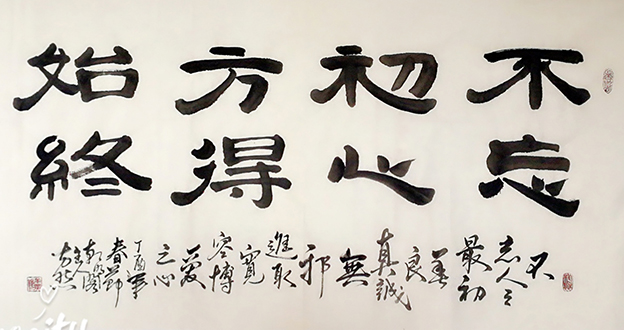 不忘
初心
方得
始終
不
忘人之
最初
善
良
真誠
無
邪
進取
寬
容博
愛
之心
丁酉年
春節